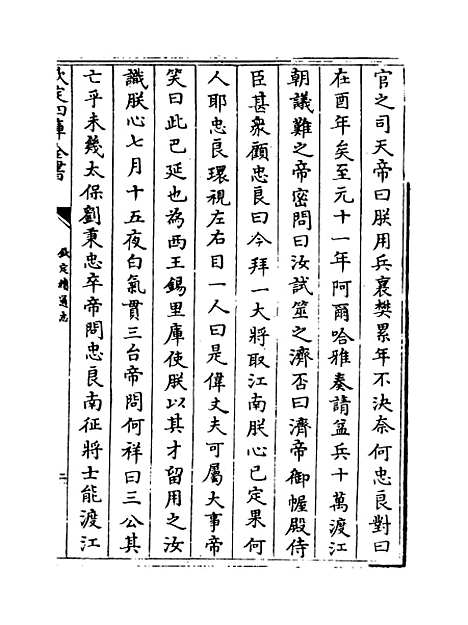 官之司天帝曰朕用兵襄樊累年不決奈何忠良對曰
在酉年矣至元十一年阿爾哈雅奏請益兵十萬渡江
朝議難之帝密問曰汝試筮之濟否曰濟帝御幄殿侍
臣甚衆顧忠良曰今拜一大將取江南朕心已定果何
人耶忠良環視左右目一人曰是偉丈夫可屬大事帝
笑曰此巴延也為西王錫里庫使朕以其才留用之汝
識朕心七月十五夜白氣貫三台帝問何祥曰三公其
亡乎未幾太保劉秉忠卒帝問忠良南征將士能渡江
欽定四庫全書
欽定續通志
二